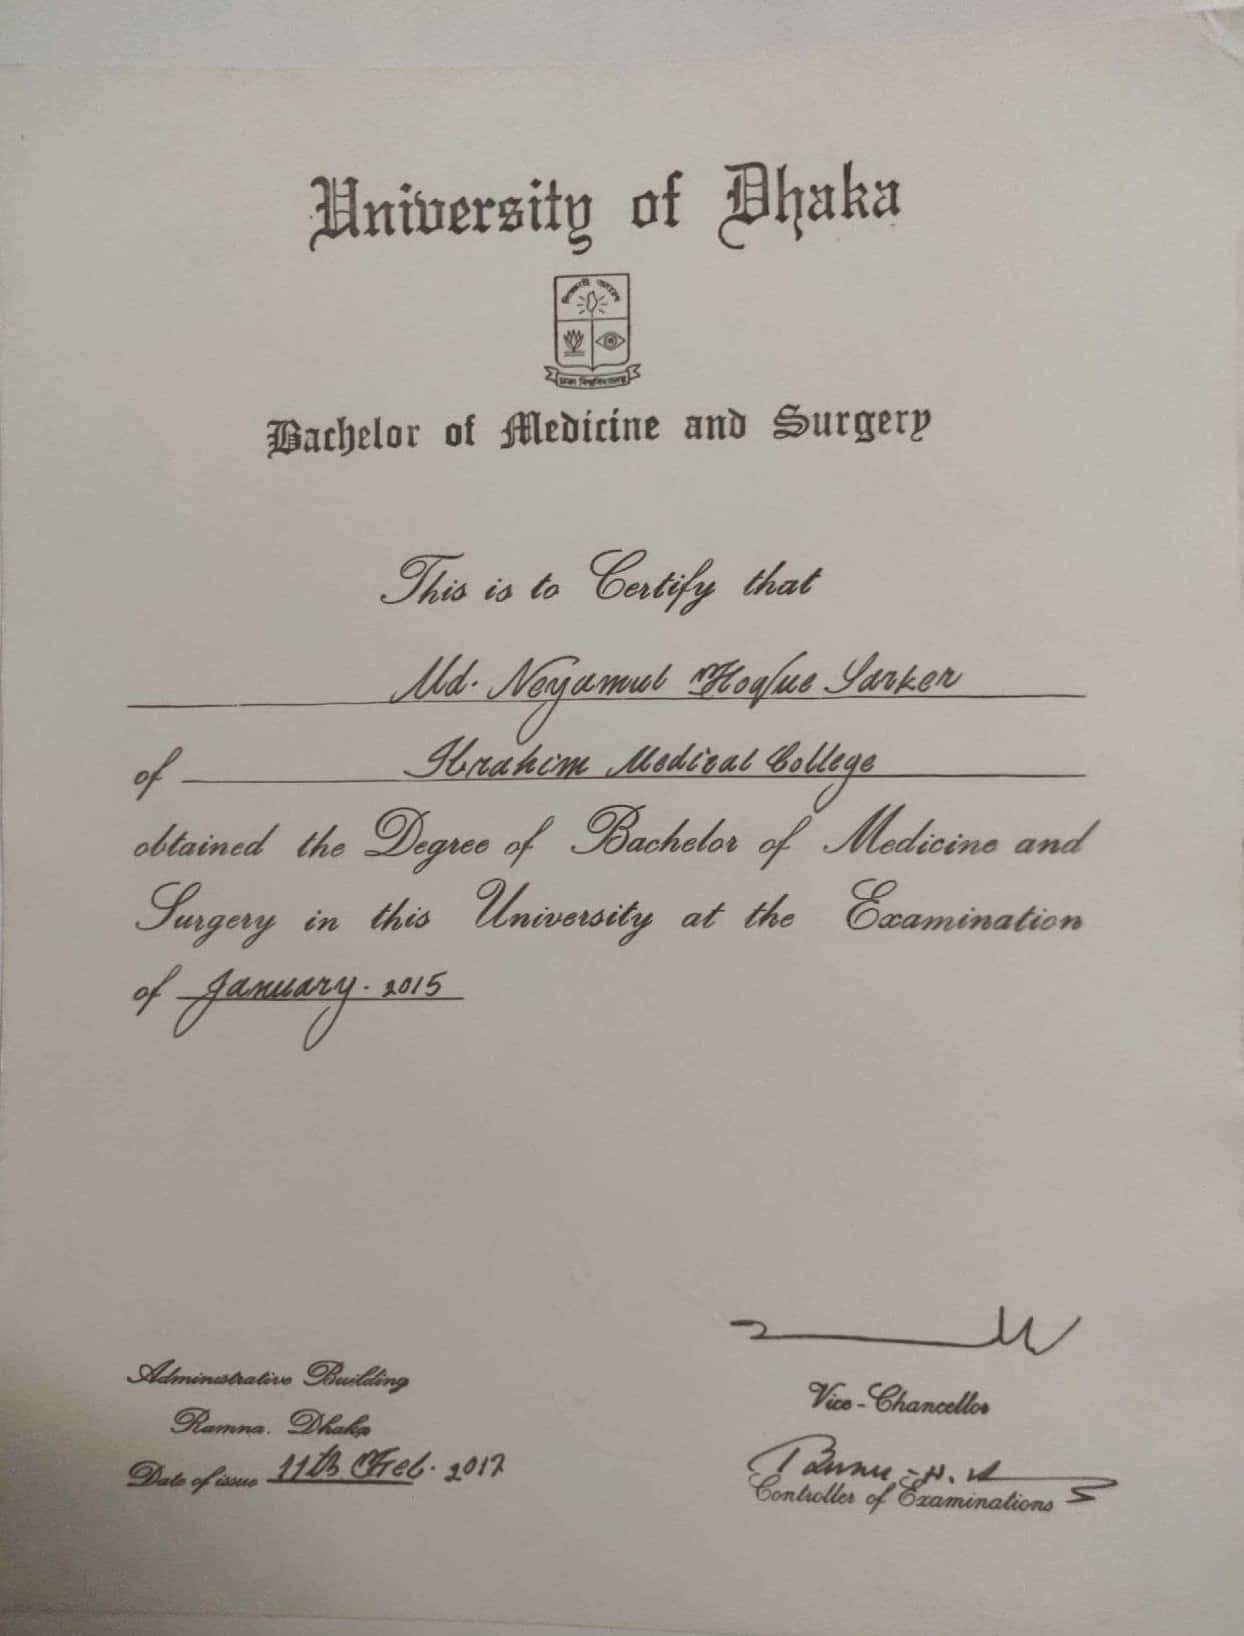 University of Dhaka
Bachelor of Medicine and Surgery
This is to Certify that
Md. Neyamul Hoque Sarker
of Ibrahim Medical College
obtained the Degree of Bachelor of Medicine and
Surgery in this University at the Examination
of January. 2015
Administrative Building
Ramna. Dhaka
Date of issue 11th Feb. 2017
Vice-Chancellor
Controller of Examinations